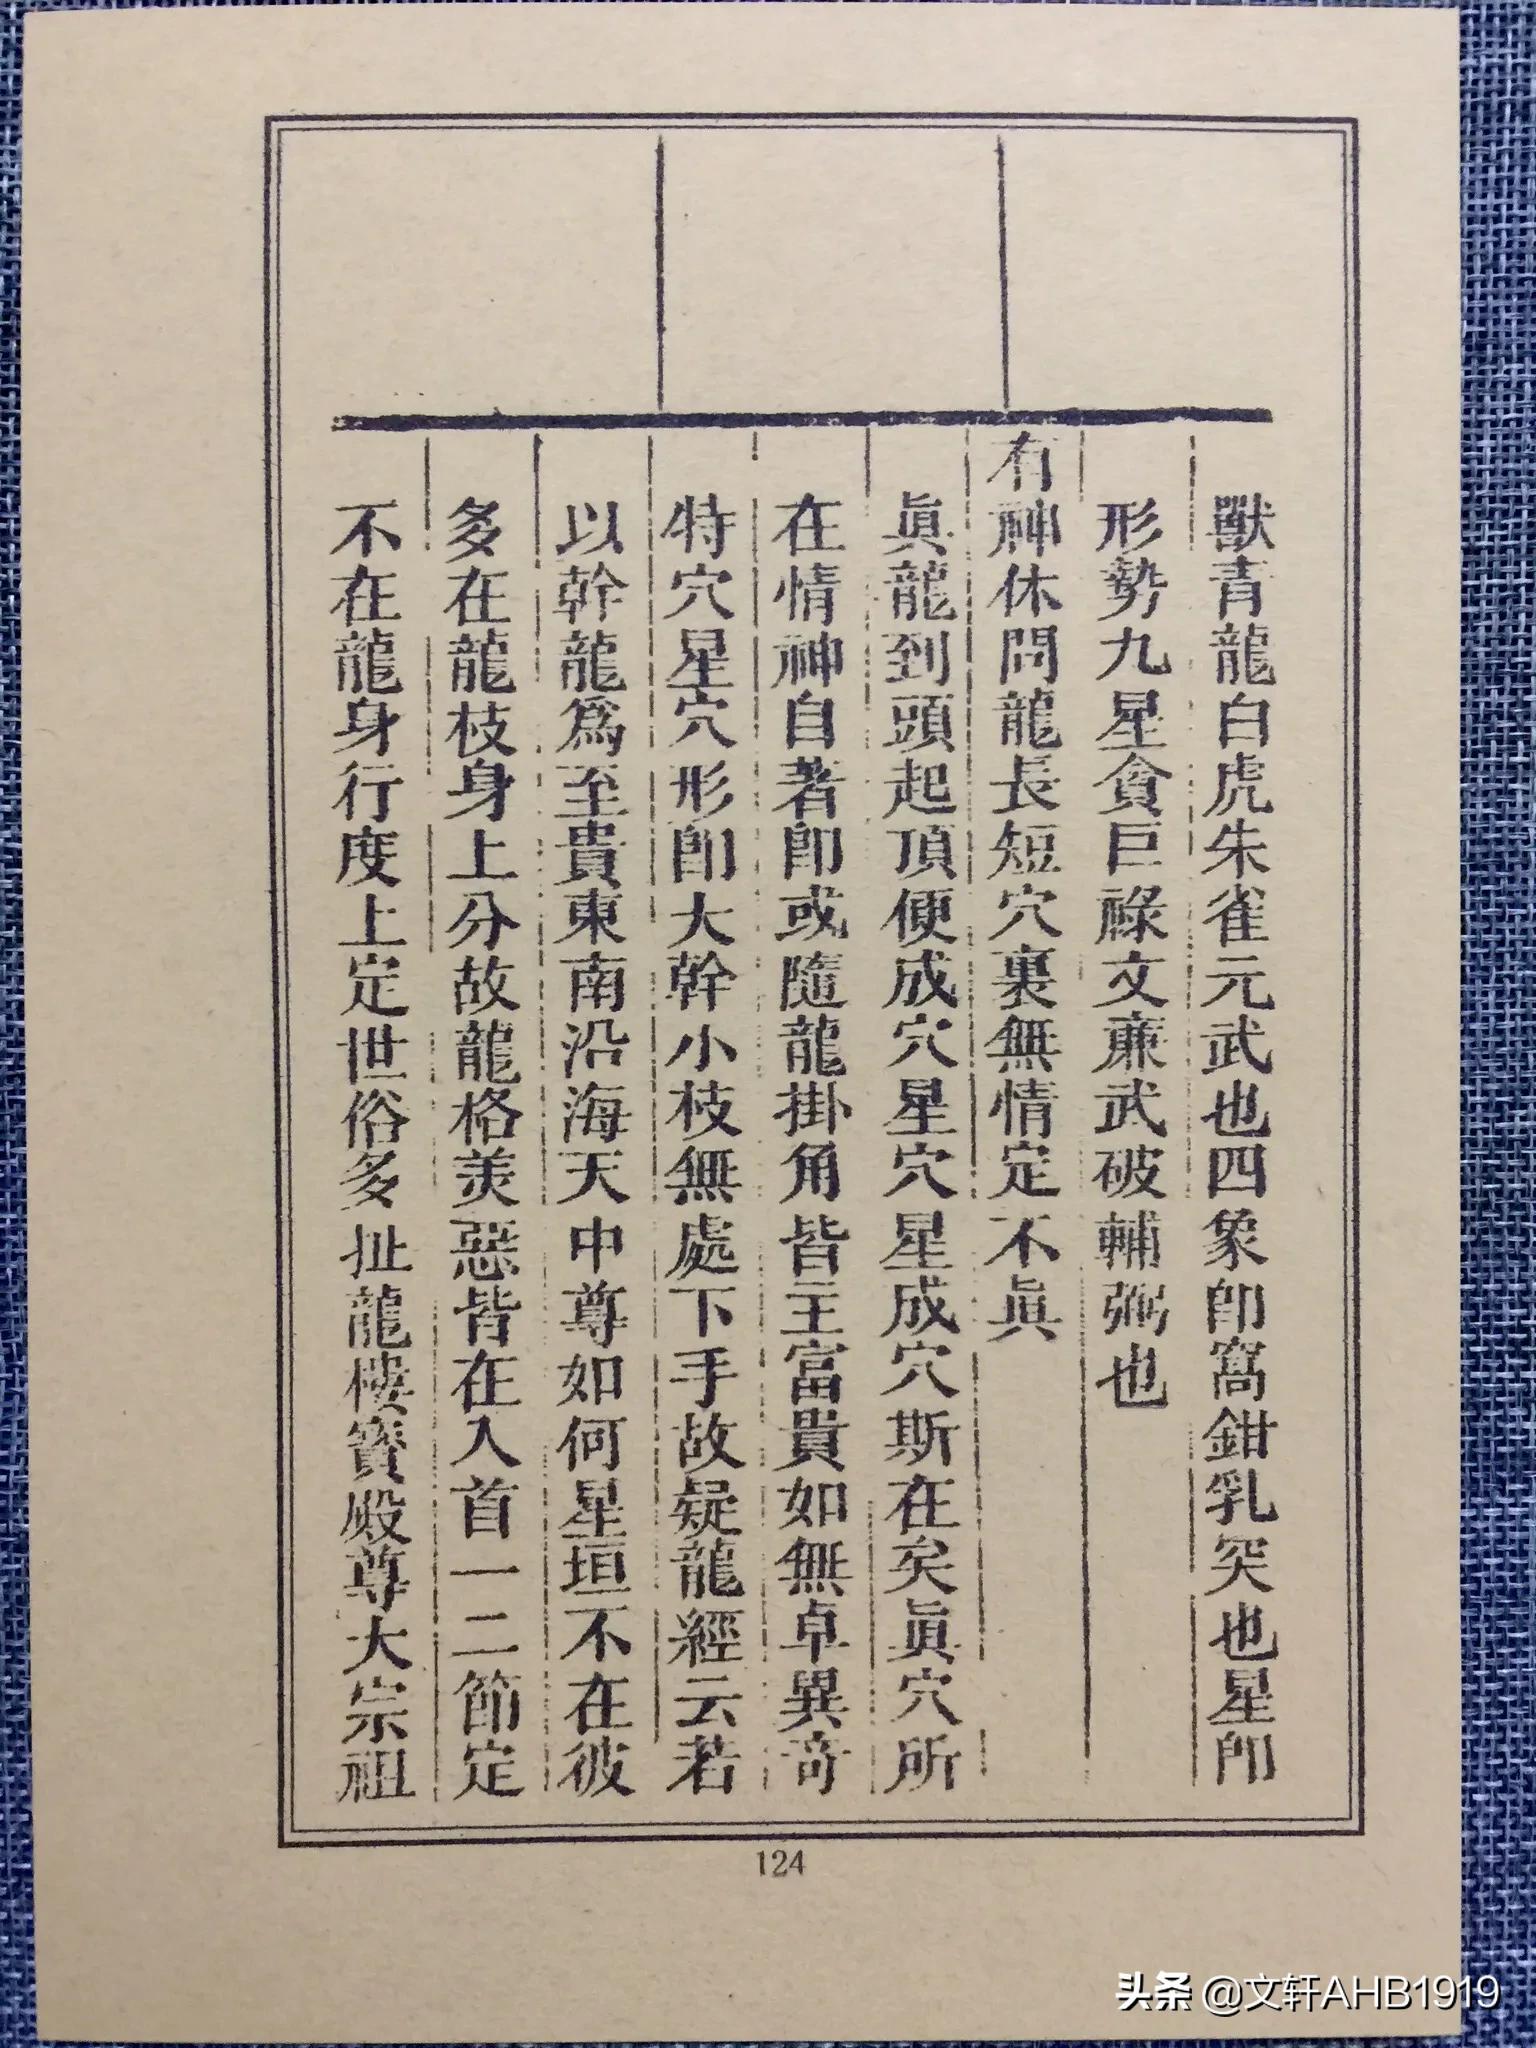 獸青龍白虎朱雀元武也四象卽窩鉗乳突也星卽
形勢九星貪巨祿文廉武破輔弼也
有神休問龍長短穴裏無情定不眞
眞龍到頭起頂便成穴星穴星成穴斯在矣眞穴所
在情神自著卽或隨龍掛角皆主富貴如無卓異奇
特穴星穴形卽大幹小枝無處下手故疑龍經云若
以幹龍爲至貴東南沿海天中尊如何星垣不在彼
多在龍枝身上分故龍格美惡皆在入首一二節定
不在龍身行度上定世俗多扯龍樓寶殿尊大宗祖
124
头条 @文轩AHB1919